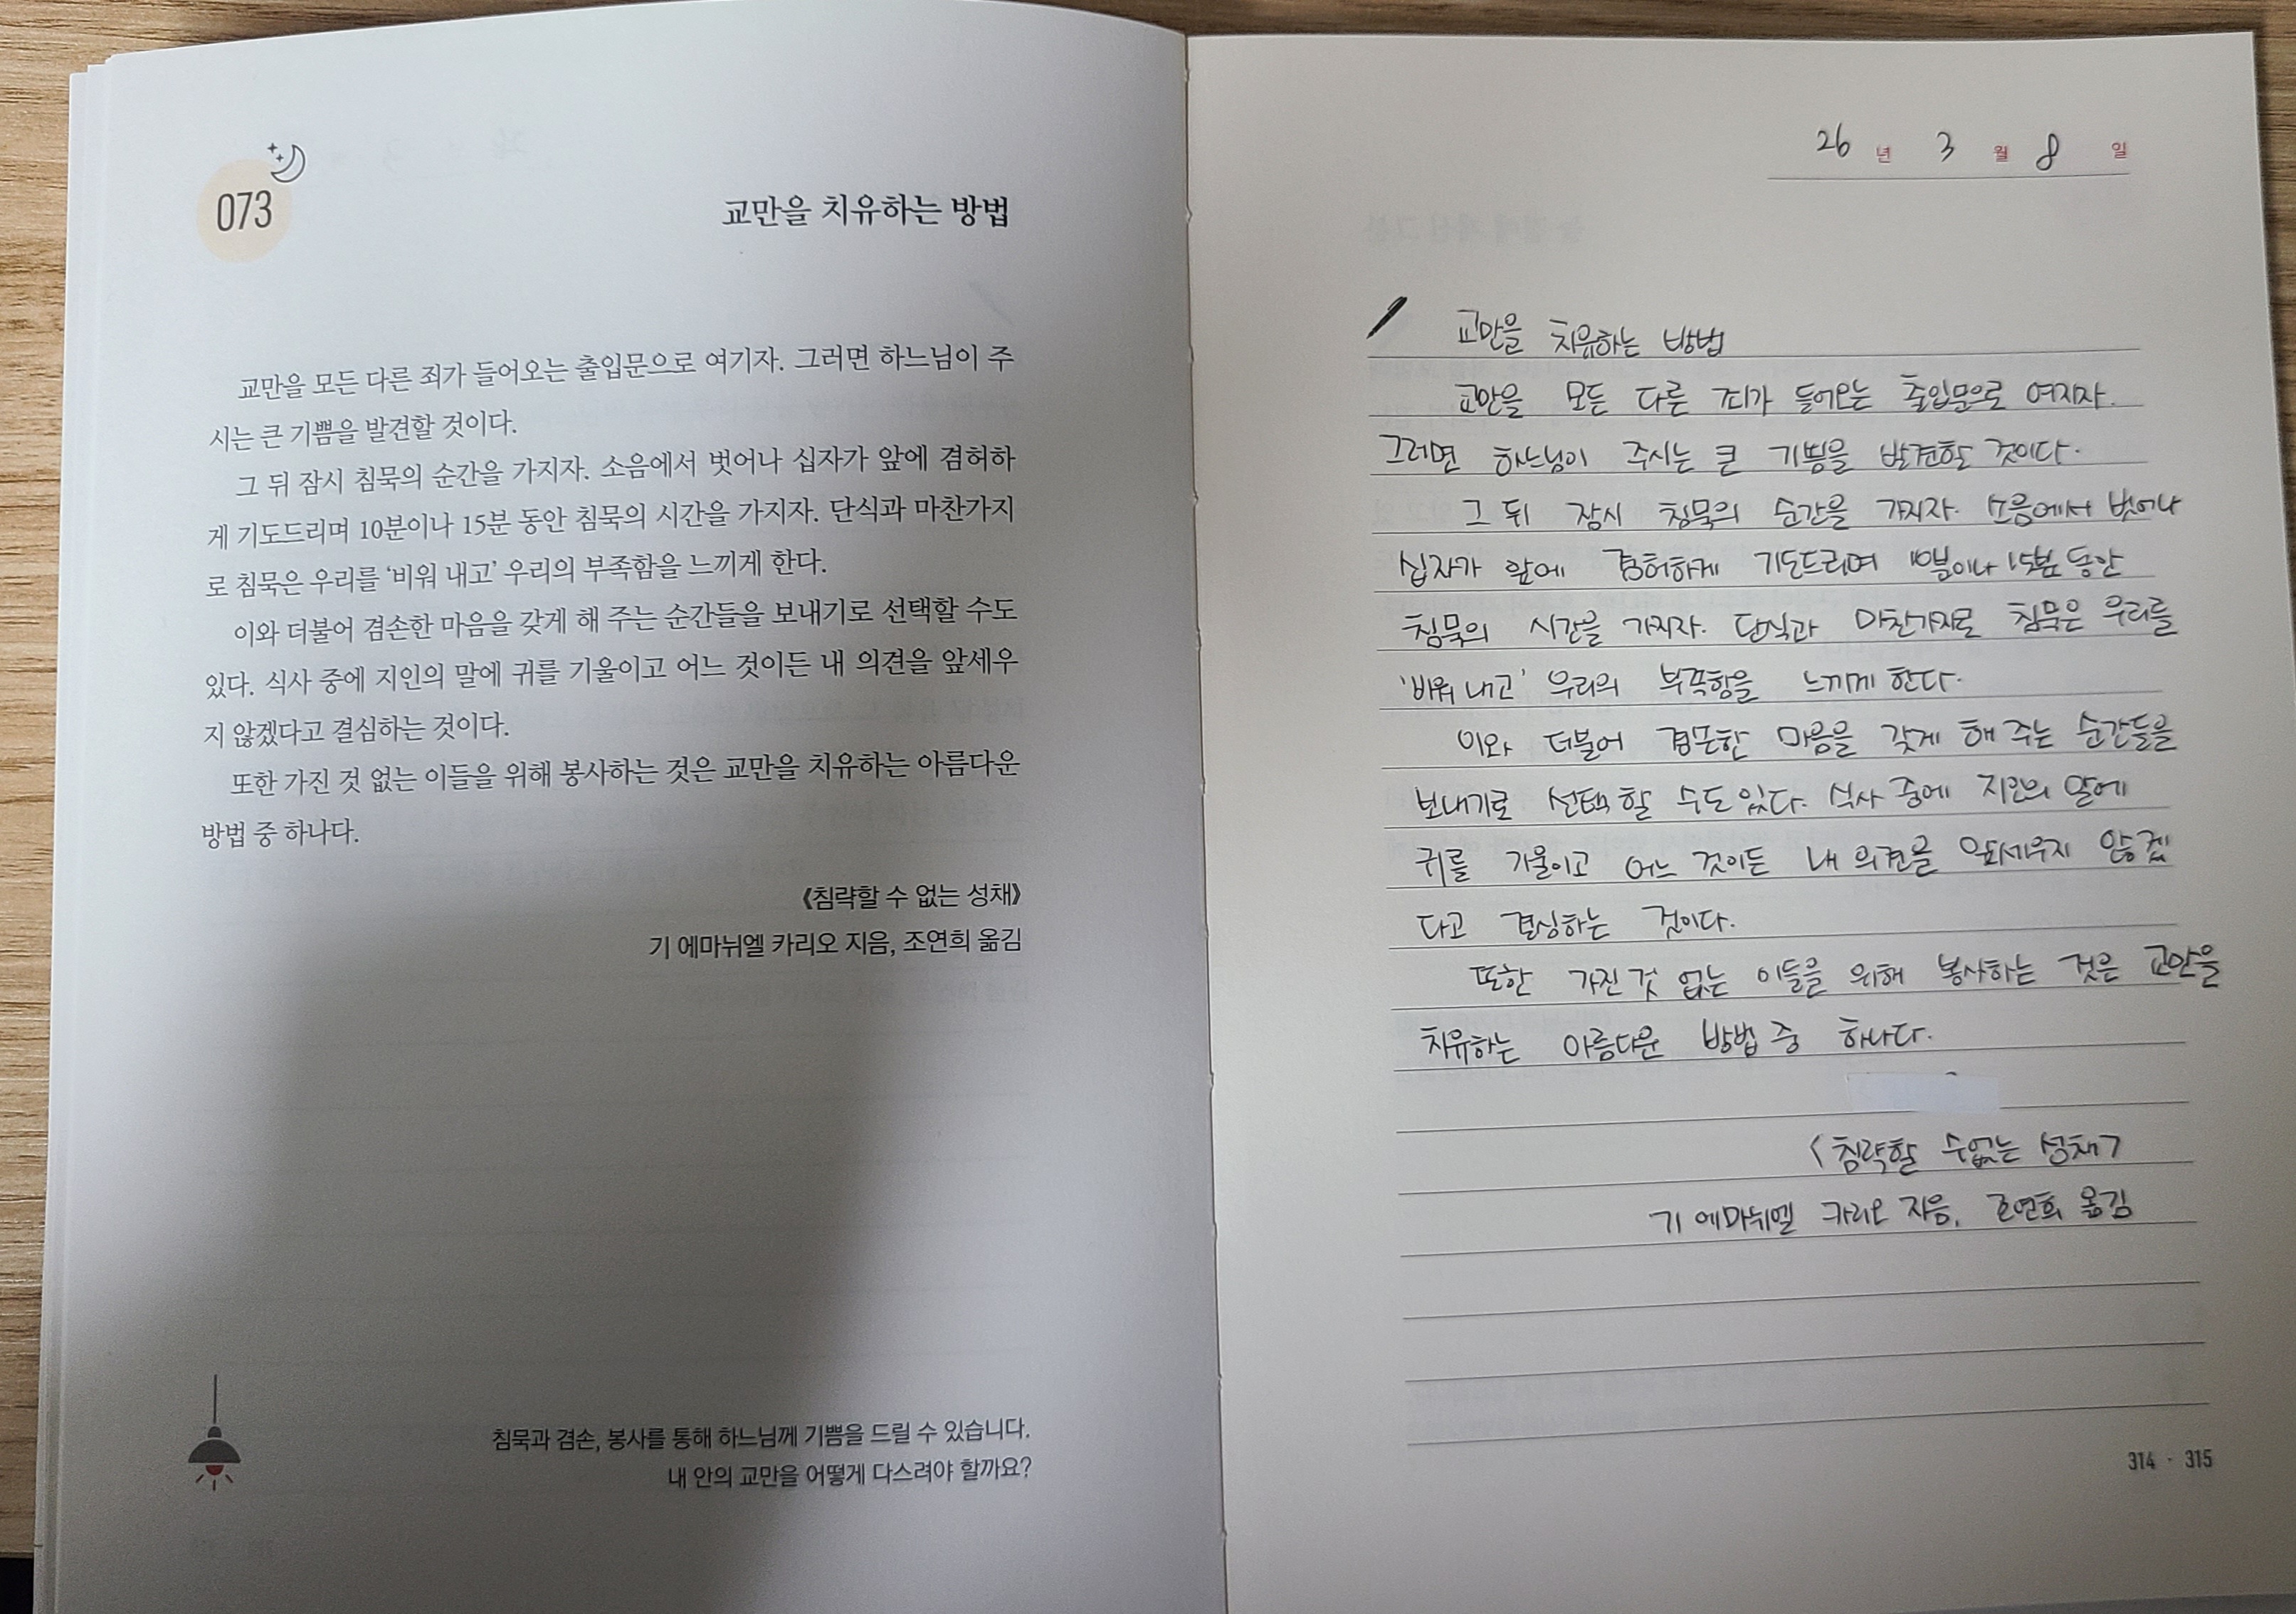 073
교만을 치유하는 방법
교만을 모든 다른 죄가 들어오는 출입문으로 여기자. 그러면 하느님이 주
시는 큰 기쁨을 발견할 것이다.
그 뒤 잠시 침묵의 순간을 가지자. 소음에서 벗어나 십자가 앞에 겸허하
게 기도드리며 10분이나 15분 동안 침묵의 시간을 가지자. 단식과 마찬가지
로 침묵은 우리를 ‘비워 내고’ 우리의 부족함을 느끼게 한다.
이와 더불어 겸손한 마음을 갖게 해 주는 순간들을 보내기로 선택할 수도
있다. 식사 중에 지인의 말에 귀를 기울이고 어느 것이든 내 의견을 앞세우
지 않겠다고 결심하는 것이다.
또한 가진 것 없는 이들을 위해 봉사하는 것은 교만을 치유하는 아름다운
방법 중 하나다.
《침략할 수 없는 성채》
기 에마뉘엘 카리오 지음, 조연희 옮김
침묵과 겸손, 봉사를 통해 하느님께 기쁨을 드릴 수 있습니다.
내 안의 교만을 어떻게 다스려야 할까요?
26 년 3 월 8 일
교만을 치유하는 방법
교만을 모든 다른 죄가 들어오는 출입문으로 여기자.
그러면 하느님이 주시는 큰 기쁨을 발견할 것이다.
그 뒤 잠시 침묵의 순간을 가지자. 소음에서 벗어나
십자가 앞에 겸허하게 기도드리며 10분이나 15분 동안
침묵의 시간을 가지자. 단식과 마찬가지로 침묵은 우리를
'비워 내고' 우리의 부족함을 느끼게 한다.
이와 더불어 겸손한 마음을 갖게 해 주는 순간들을
보내기로 선택할 수도 있다. 식사 중에 지인의 말에
귀를 기울이고 어느 것이든 내 의견을 앞세우지 않겠
다고 결심하는 것이다.
또한 가진 것 없는 이들을 위해 봉사하는 것은 교만을
치유하는 아름다운 방법 중 하나다.
<침략할 수없는 성채>
기 에마뉘엘 카리오 지음, 조연희 옮김
314 · 315